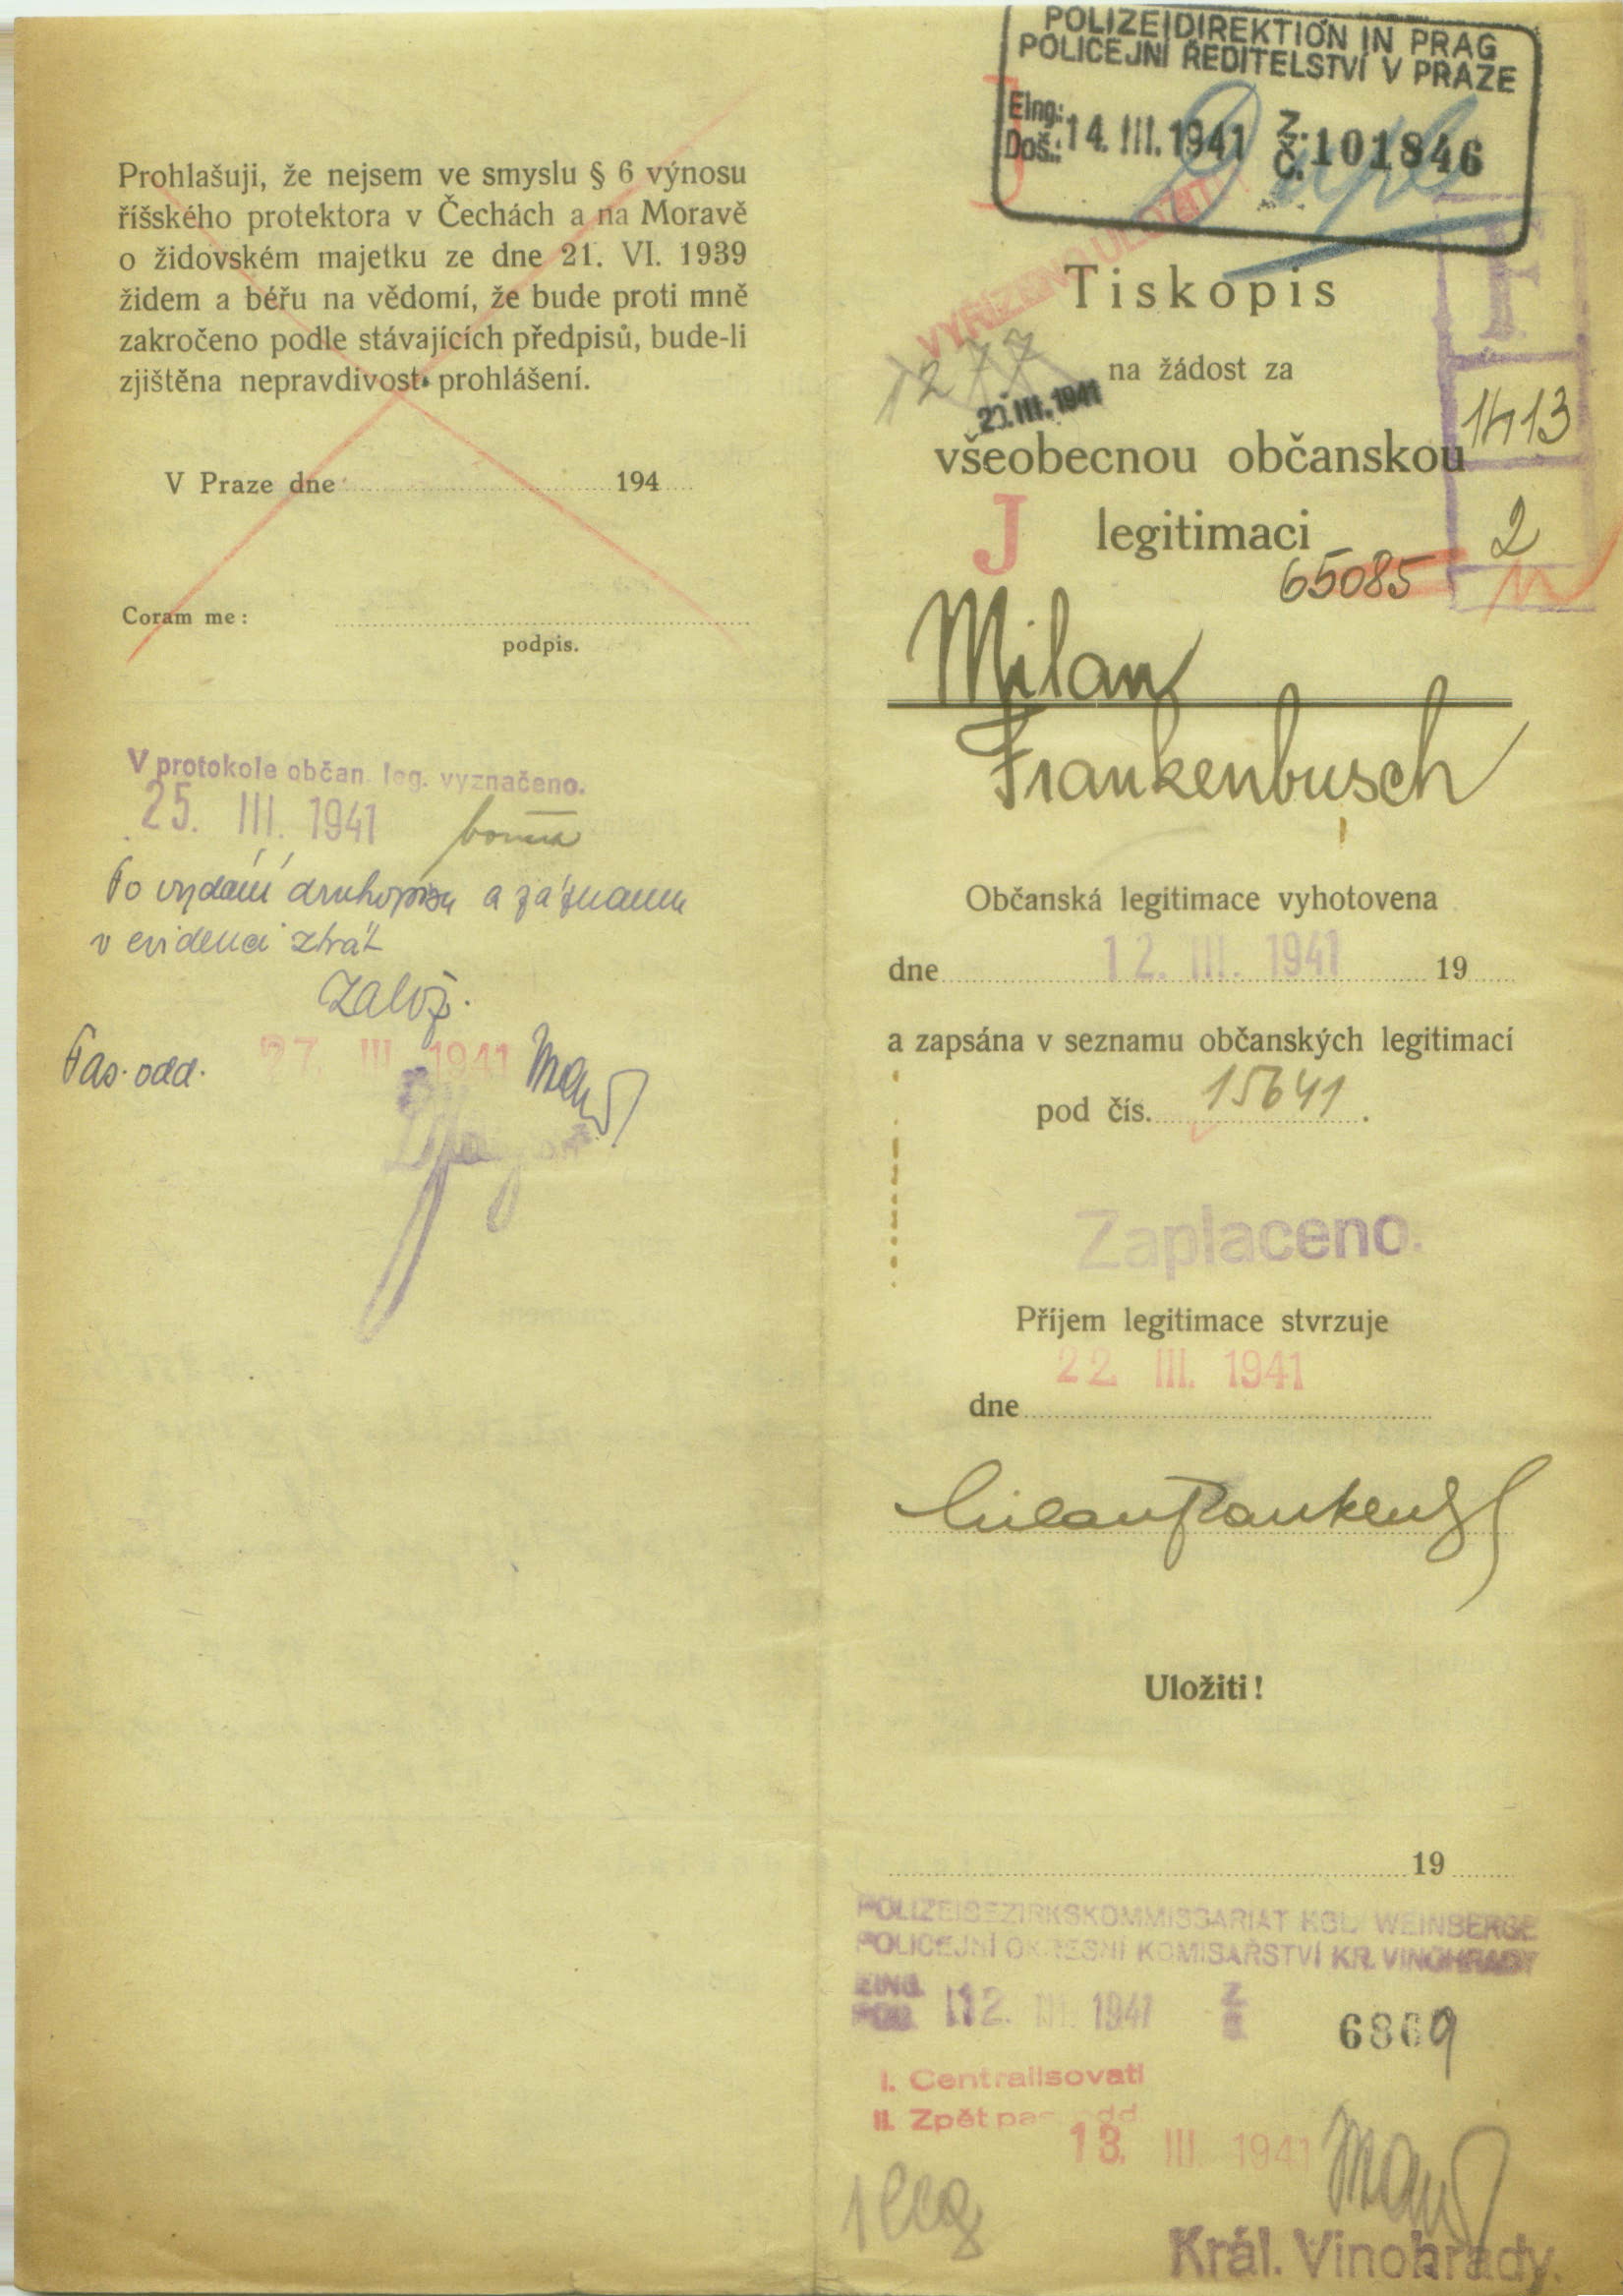 Prohlašuji, že nejsem ve smyslu § 6 výnosu
říšského protektora v Čechách a na Moravě
o židovském majetku ze dne 21. VI. 1939
židem a béřu na vědomí, že bude proti mně
zakročeno podle stávajících předpisů, bude-li
zjištěna nepravdivost prohlášení.
V Praze dne 194
Coram me:
podpis.
V protokole občan. leg. vyznačeno.
25. III. 1941
Po vydání druhopisu a záznamu
v evidenci ztrát
Založ.
Pas. odd. 27. III. 1941
POLIZEIDIREKTION IN PRAG
POLICEJNÍ ŘEDITELSTVÍ V PRAZE
Eing.:
Doš.: 14. III. 1941 Z. Č. 101846
VYŘÍZENO ULOŽIT!
Tiskopis
1277
na žádost za
23. III. 1941
všeobecnou občanskou
1413
J legitimaci
2
65085
Milan
Frankenbusch
Občanská legitimace vyhotovena
dne 12. III. 1941 19
a zapsána v seznamu občanských legitimací
pod čís. 15641.
Zaplaceno.
Příjem legitimace stvrzuje
22. III. 1941
dne
Milan Frankenb
Uložiti!
19
POLIZEIBEZIRKSKOMMISSARIAT KGL. WEINBERGE
POLICEJNÍ OKRESNÍ KOMISAŘSTVÍ KR. VINOHRADY
EING. 12. III. 1941 Z 6869
I. Centralisovati
II. Zpět pas. odd.
13. III. 1941
Král. Vinohrady.